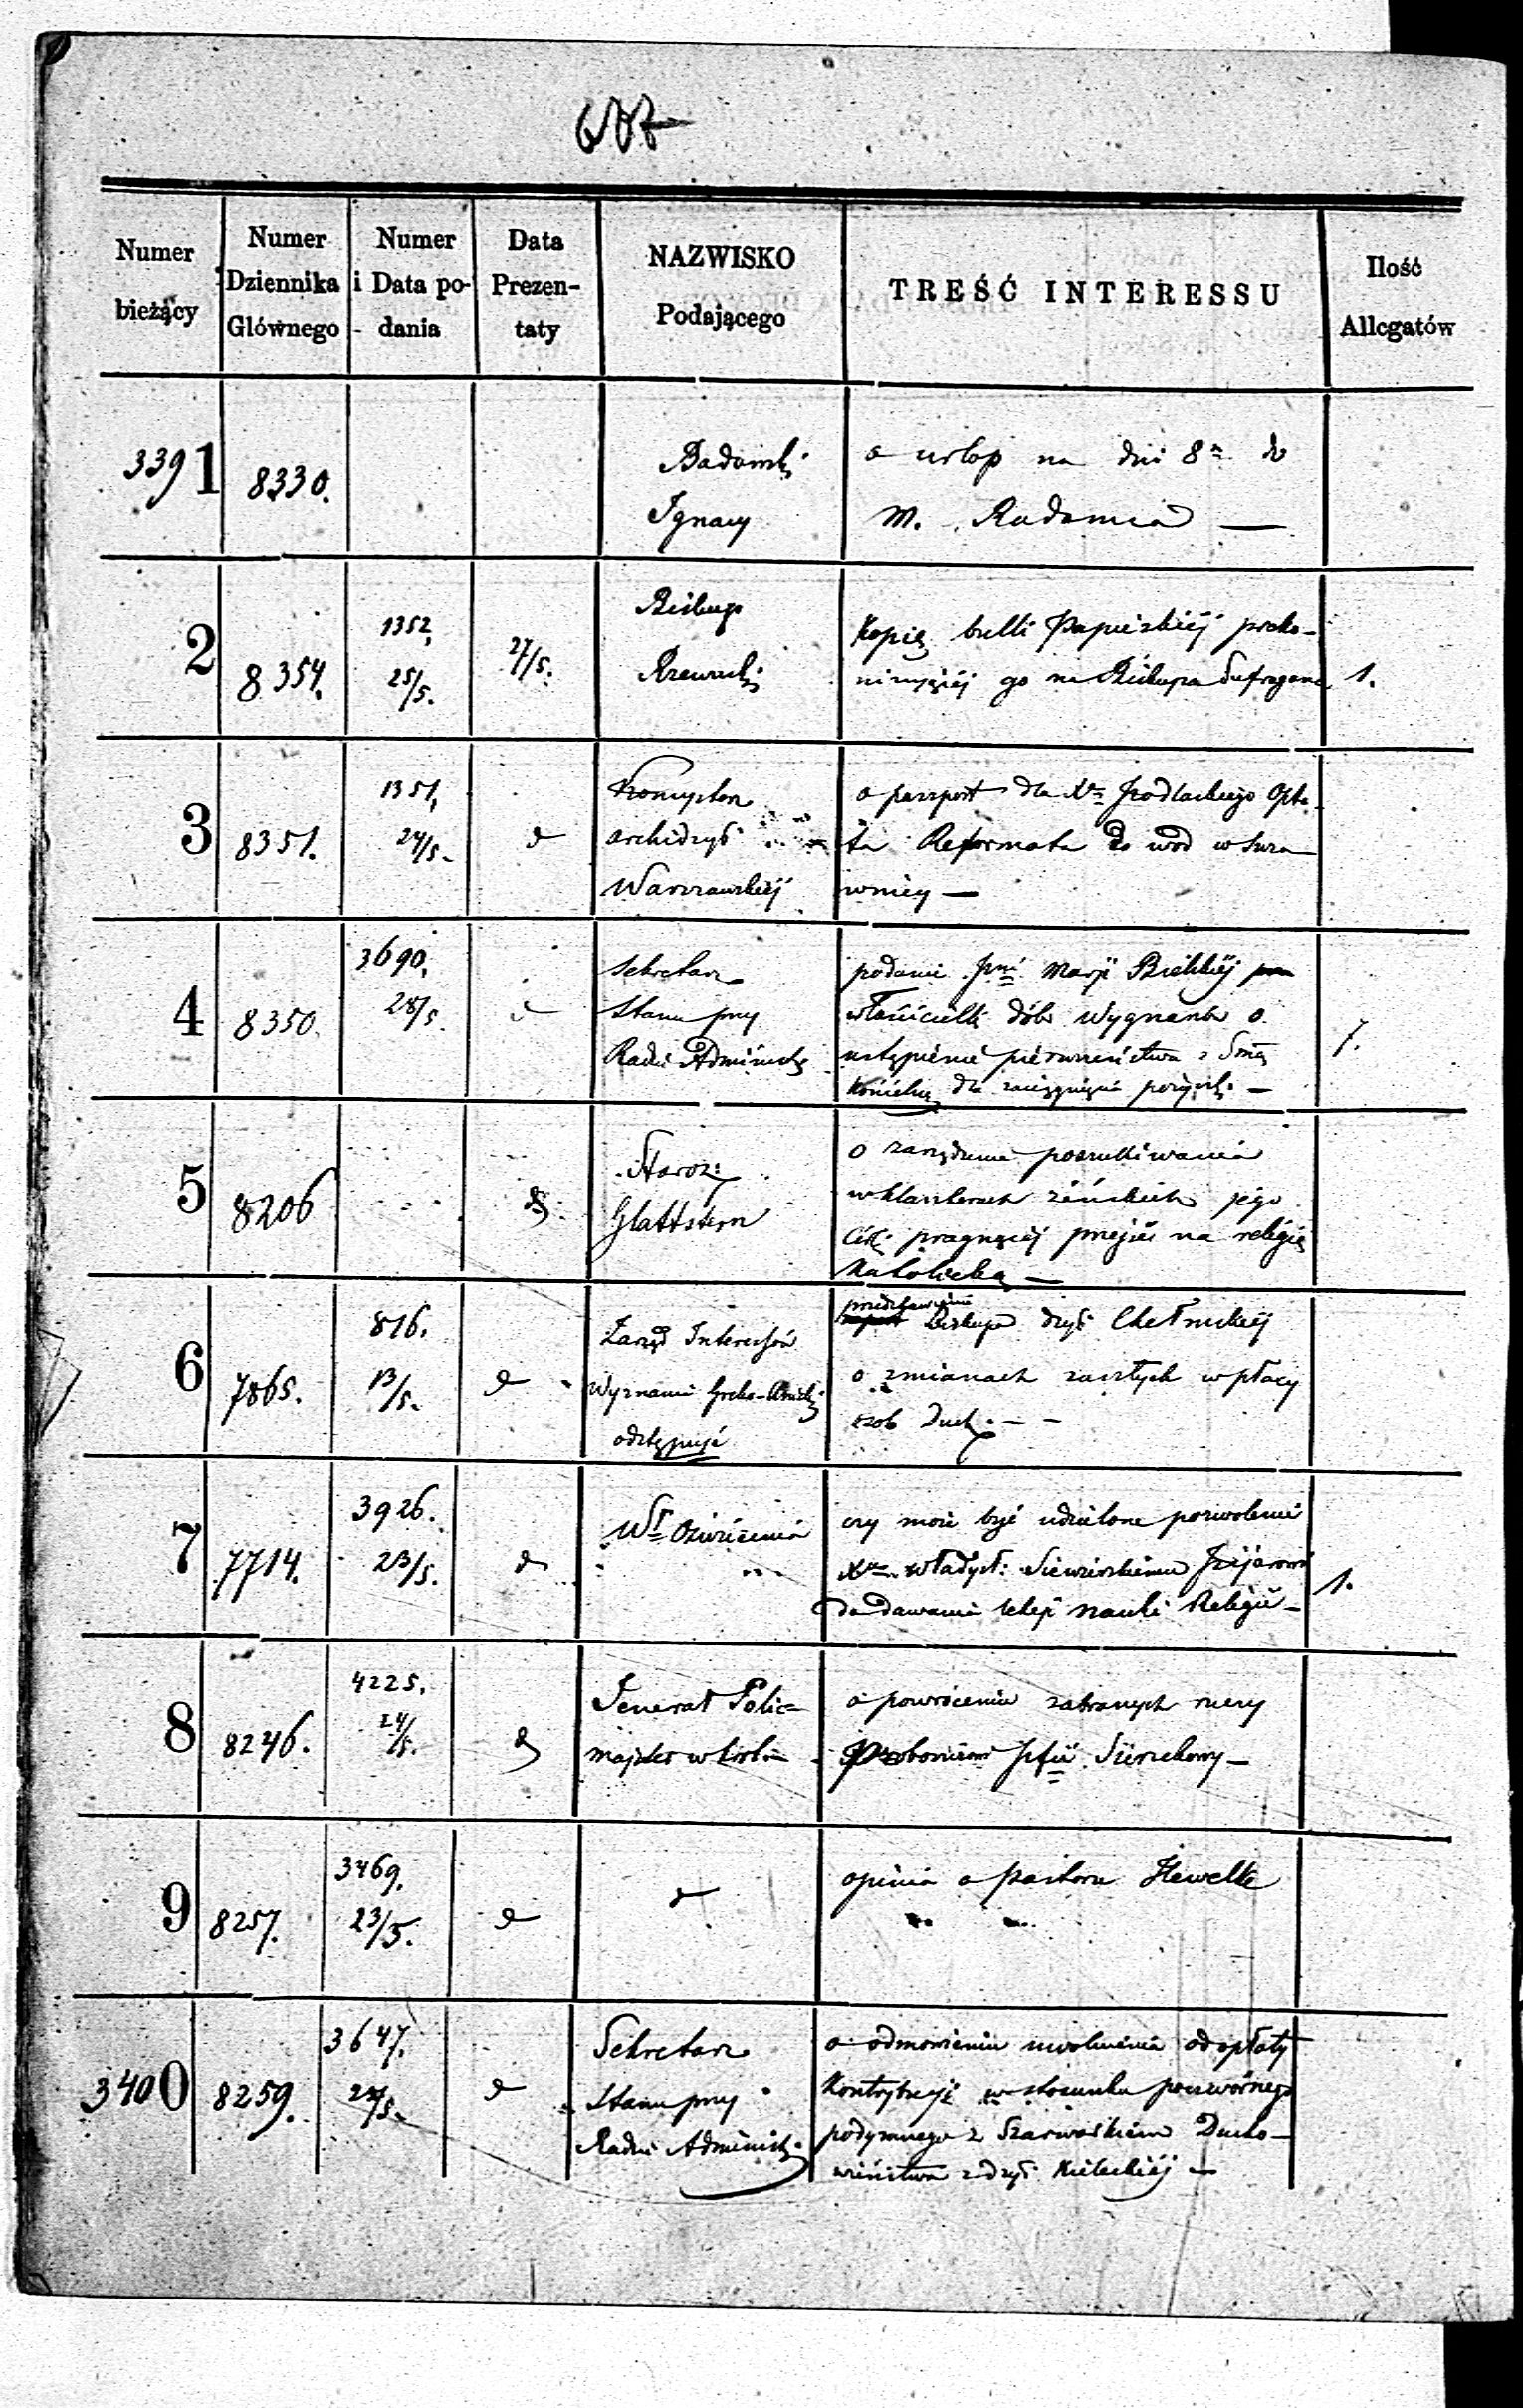 Numer bieżący
Numer Dziennika Głównego
Numer i Data podania
Data Prezentaty
NAZWISKO Podającego
TREŚĆ INTERESSU
Ilość Allegatów
3391
8330.
Badowski
Ignacy
o urlop na dni 8 do
m. Radomia —
2
8354.
1352,
25/5.
27/5.
Biskup
Rzewuski
Kopię bulli Papieskiéj preko-
nizującéj go na Biskupa Sufragana
1.
3
8351.
1351,
24/5.
d
Konsystorz
archidyé
Warszawskiéj
o passport dla Xa Opta-
ta Reformata do wód w Szcza-
wnicy —
4
8350.
3690,
28/5.
d
Sekretarz
Stanu przy
Radzie Administ:
podanie Pni Marji Bielskiéj
właścicielki dóbr Wygnanów o
ustąpienie pierwszeństwa z Smą
Kościelną dla zaciągnięcia pożyczki. —
7.
5
8206
d
Staroz:
Glattstern
o zarządzenie poszukiwania
w klasztorach żeńskich jego
Córki pragnącéj przejść na religię
Katolicką —
6
7865.
816.
13/5.
d
Zarząd Interessów
Wyznania Greko-Unick:
odstępuje
przedstawienie
Biskupa dyé Chełmskiéj
o zmianach zaszłych w płacy
osób Duch. — —
7
7714.
3926.
23/5.
d
Wł Oświecenia
czy może być udzielone pozwolenie
Xu Władysł: Siewierskiemu Pijarowi
do dawania lekcji nauki Religii —
1.
8
8246.
4225.
24/5.
d
Jenerał Polic=
majster w Królw
o powróceniu zabranych rzeczy
Proboszczowi Pfii Sierzchowy —
9
8257.
3469.
23/5.
d
d
opinia o pastorze Hewelke
3400
8259.
3647.
24/5.
d
Sekretarz
Stanu przy
Radzie Administ:
o odmówieniu uwolnienia od opłaty
Kontrybucji w stosunku poczwórnego
podymnego z Szarwarkiem Ducho-
wieństwa z dyé Kieleckiéj —